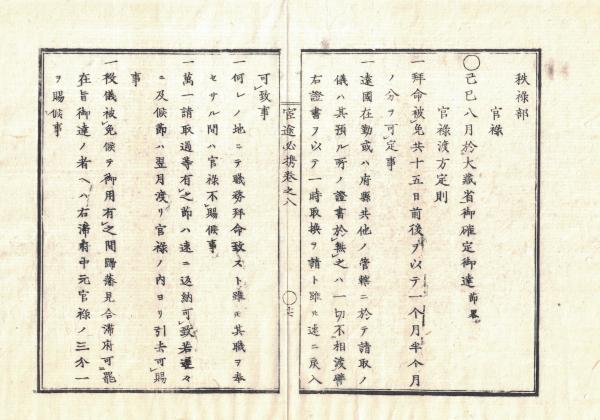 秩祿部
官祿
◯己巳八月於大藏省御確定御達 節畧
官祿渡方定則
一拜命被免共十五日前後ヲ以テ一个月半个月
ノ分ヲ可定事
一遠國在勤或ハ府縣共他ノ管轄ニ於テ請取ノ
儀ハ其預ル所ノ證書於無之ハ一切不相渡譬
右證書ヲ以テ一時取換ヲ請ト雖モ速ニ戻入
可致事
官途必携卷之八
一何レノ地ニテ職務拜命致スト雖モ其職ヲ奉
セサル間ハ官祿不賜候事
一萬一請取過等有之節ハ速ニ返納可致若遲々
ニ及候節ハ翌月渡リ官祿ノ内ヨリ引去可賜
事
一役儀被免候ヲ御用有之間歸藩見合滯府可罷
在旨御達ノ者ヘハ右滯府中元官祿ノ三分一
ヲ賜候事